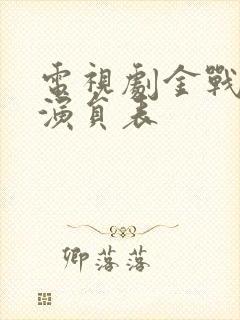 電視劇金戰
演員表
卿落落